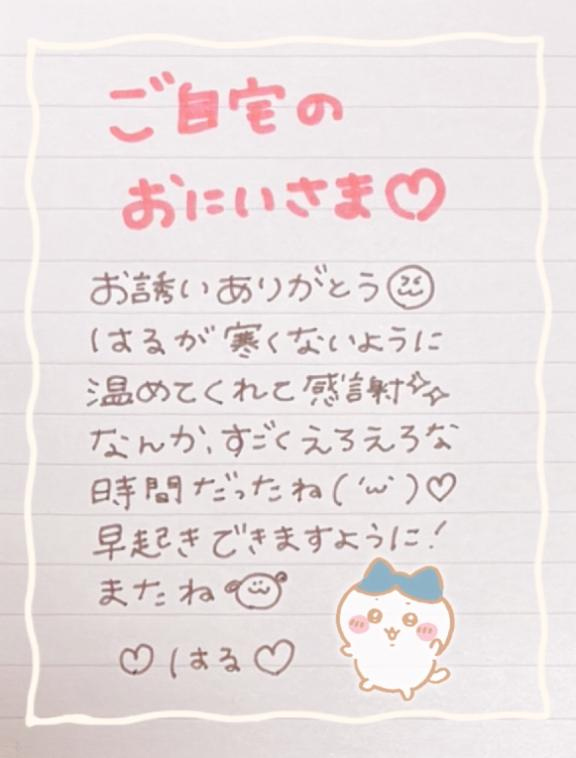 ご自宅の
おにいさま♡
お誘いありがとう
はるが寒くないように
温めてくれて感謝✨
なんか、すごくえろえろな
時間だったね(´ω`)♡
早起きできますように!
またね
♡はる♡